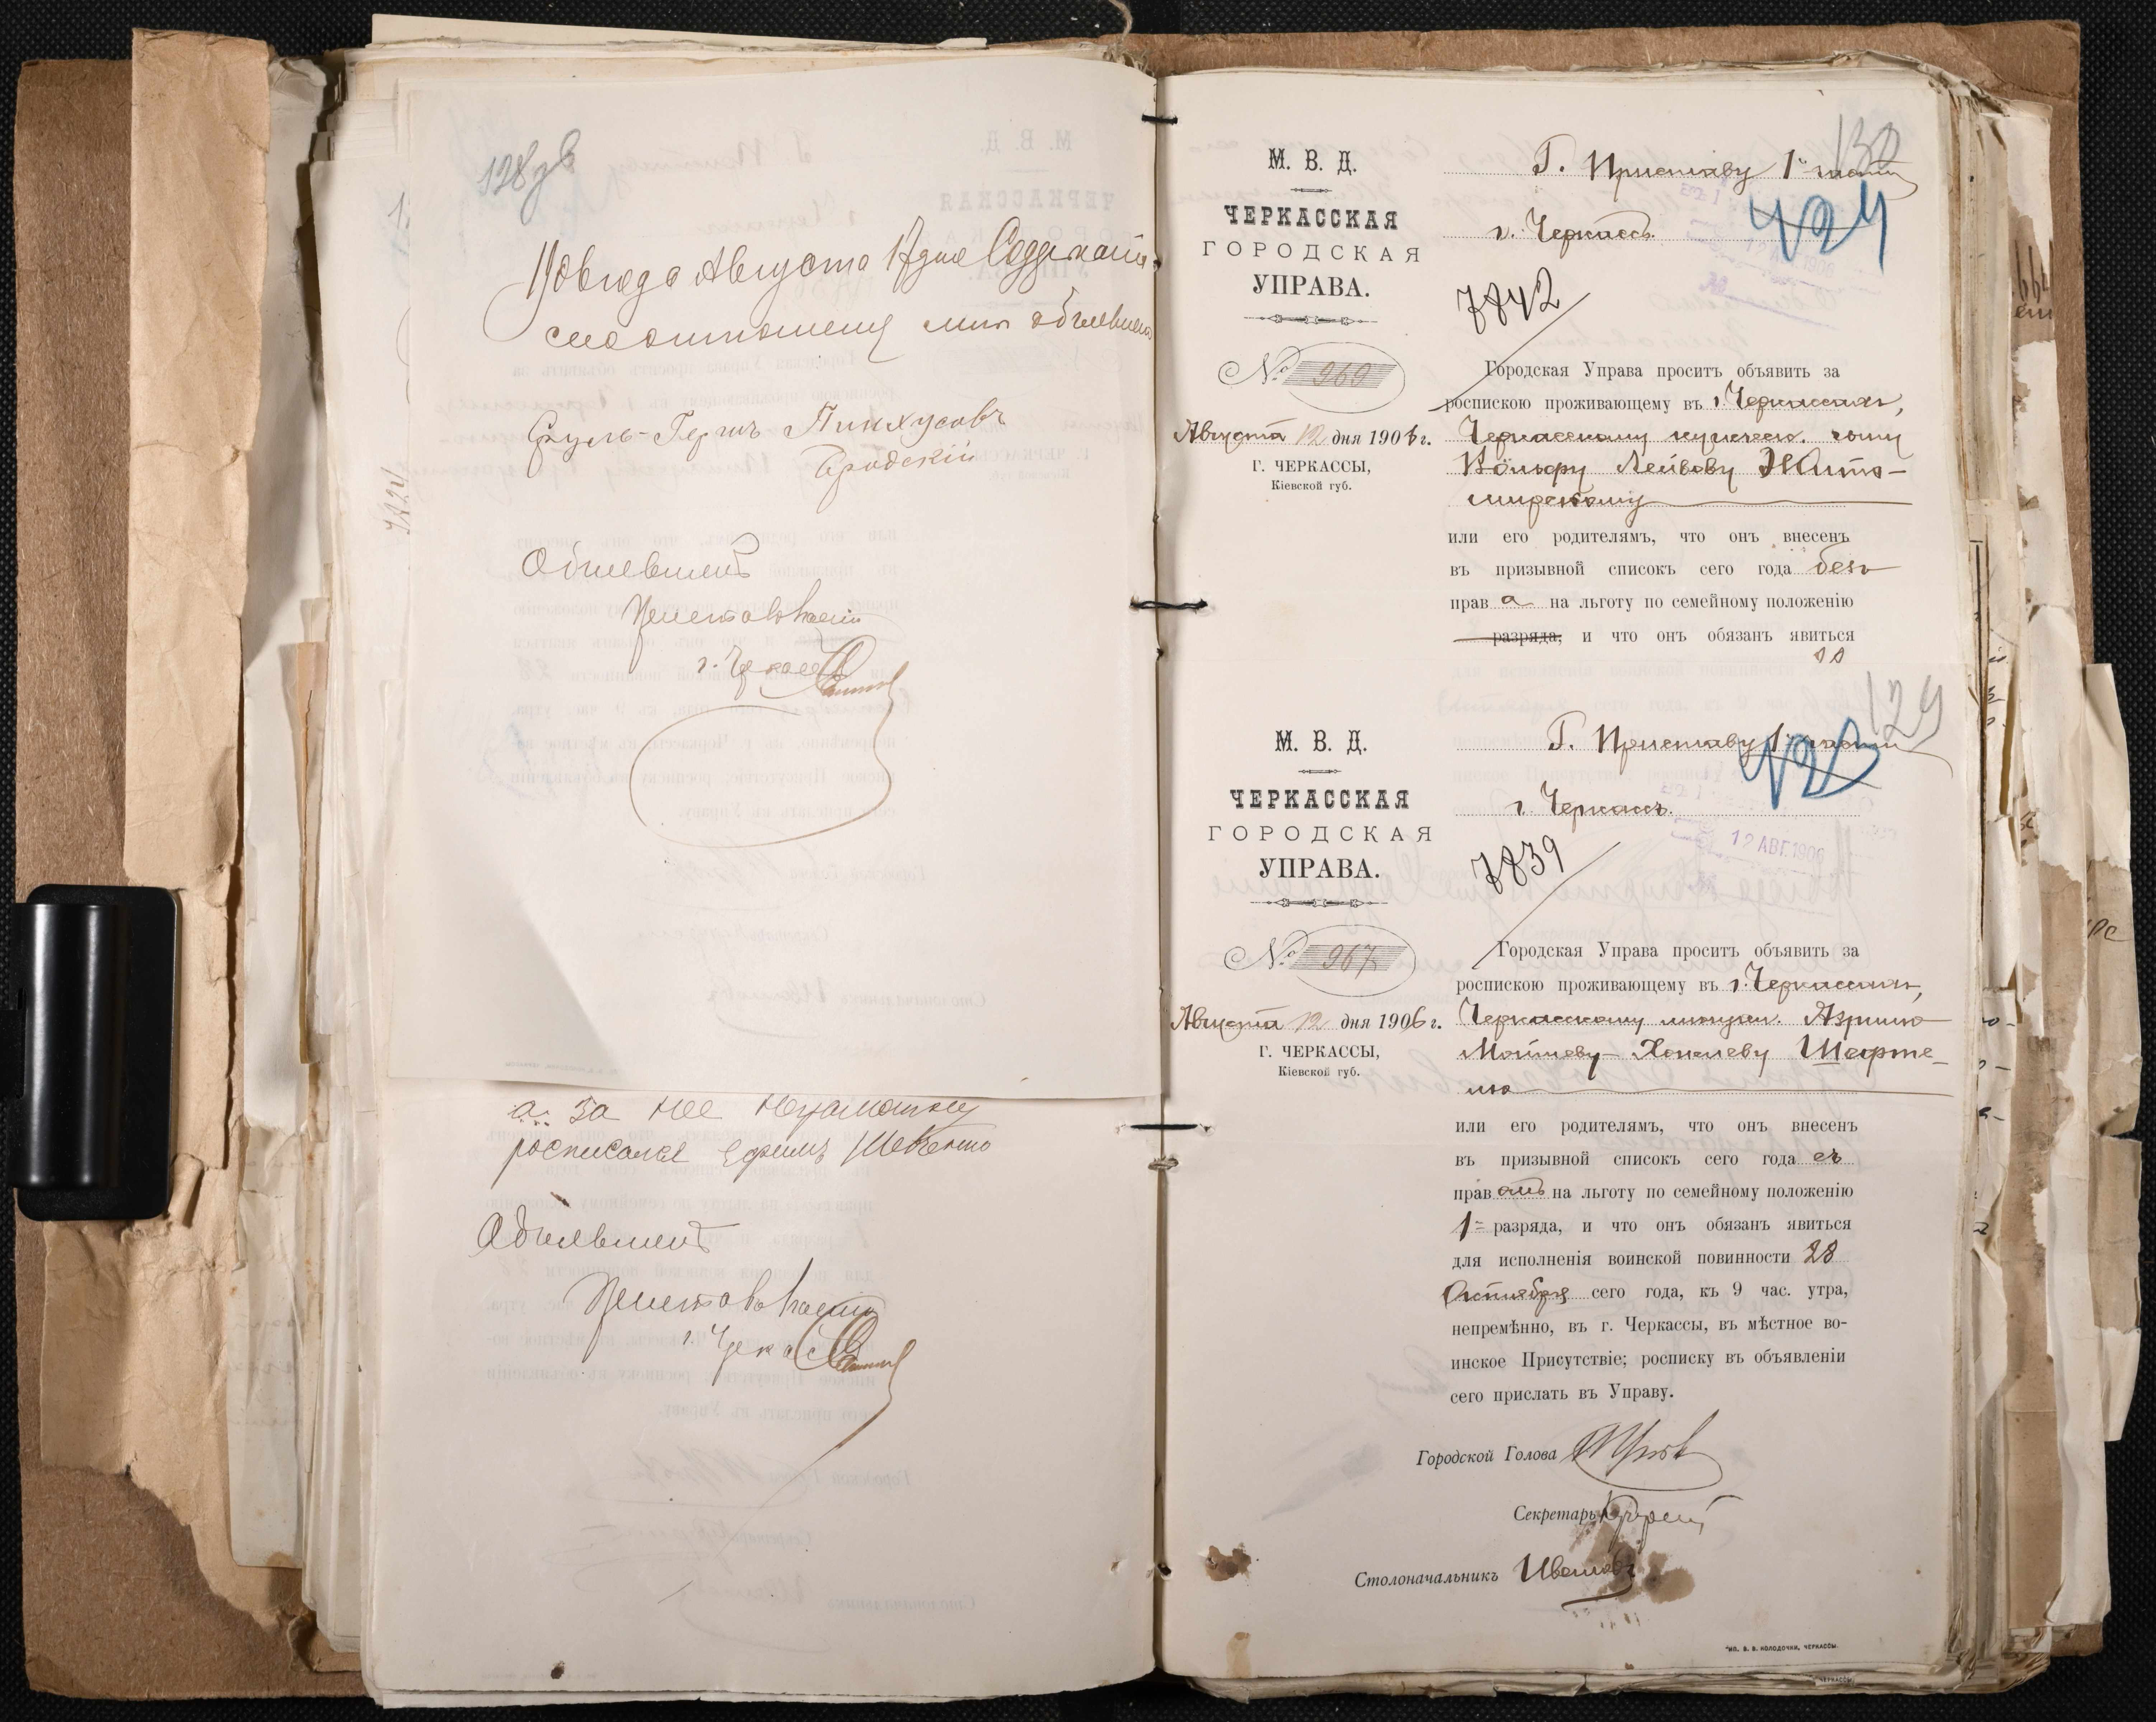 128 об
1906 года Августа 17 дня Содержаніе
сего отношенія мнѣ объявлено
Сруль-Гершъ Пинхусовъ
Бродскій
Объявилъ
г. Черкассъ
а за нее неграмотну
росписался Ефимъ Шевченко
Объявилъ
г. Черкассъ
130
М. В. Д.
ЧЕРКАССКАЯ
ГОРОДСКАЯ
УПРАВА.
№ 969
Августа 12 дня 1906 г.
Г. ЧЕРКАССЫ,
Кіевской губ.
Г. Приставу 1й части
г. Черкассъ.
424
12 АВГ. 1906
7842
Городская Управа проситъ объявить за
роспискою проживающему въ г. Черкассахъ,
Черкасскому купеческ. сыну
Вольфу Лейбову Жито-
мирскому
или его родителямъ, что онъ внесенъ
въ призывной списокъ сего года безъ
прав а на льготу по семейному положенію
разряда, и что онъ обязанъ явиться
129
М. В. Д.
ЧЕРКАССКАЯ
ГОРОДСКАЯ
УПРАВА.
№ 967
Августа 12 дня 1906 г.
Г. ЧЕРКАССЫ,
Кіевской губ.
Г. Приставу 1й части
г. Черкассъ.
12 АВГ. 1906
7839
Городская Управа проситъ объявить за
роспискою проживающему въ г. Черкассахъ,
Черкасскому мѣщан. Азрилю
Мойшеву-Хакелеву Шафте-
лю
или его родителямъ, что онъ внесенъ
въ призывной списокъ сего года съ
прав омъ на льготу по семейному положенію
1= разряда, и что онъ обязанъ явиться
для исполненія воинской повинности 28
Октября сего года, къ 9 час. утра,
непремѣнно, въ г. Черкассы, въ мѣстное во-
инское Присутствіе; росписку въ объявленіи
сего прислать въ Управу.
Городской Голова
Секретарь
Столоначальникъ Ивановъ
ТИП. В. В. КОЛОДОЧКИ, ЧЕРКАССЫ.